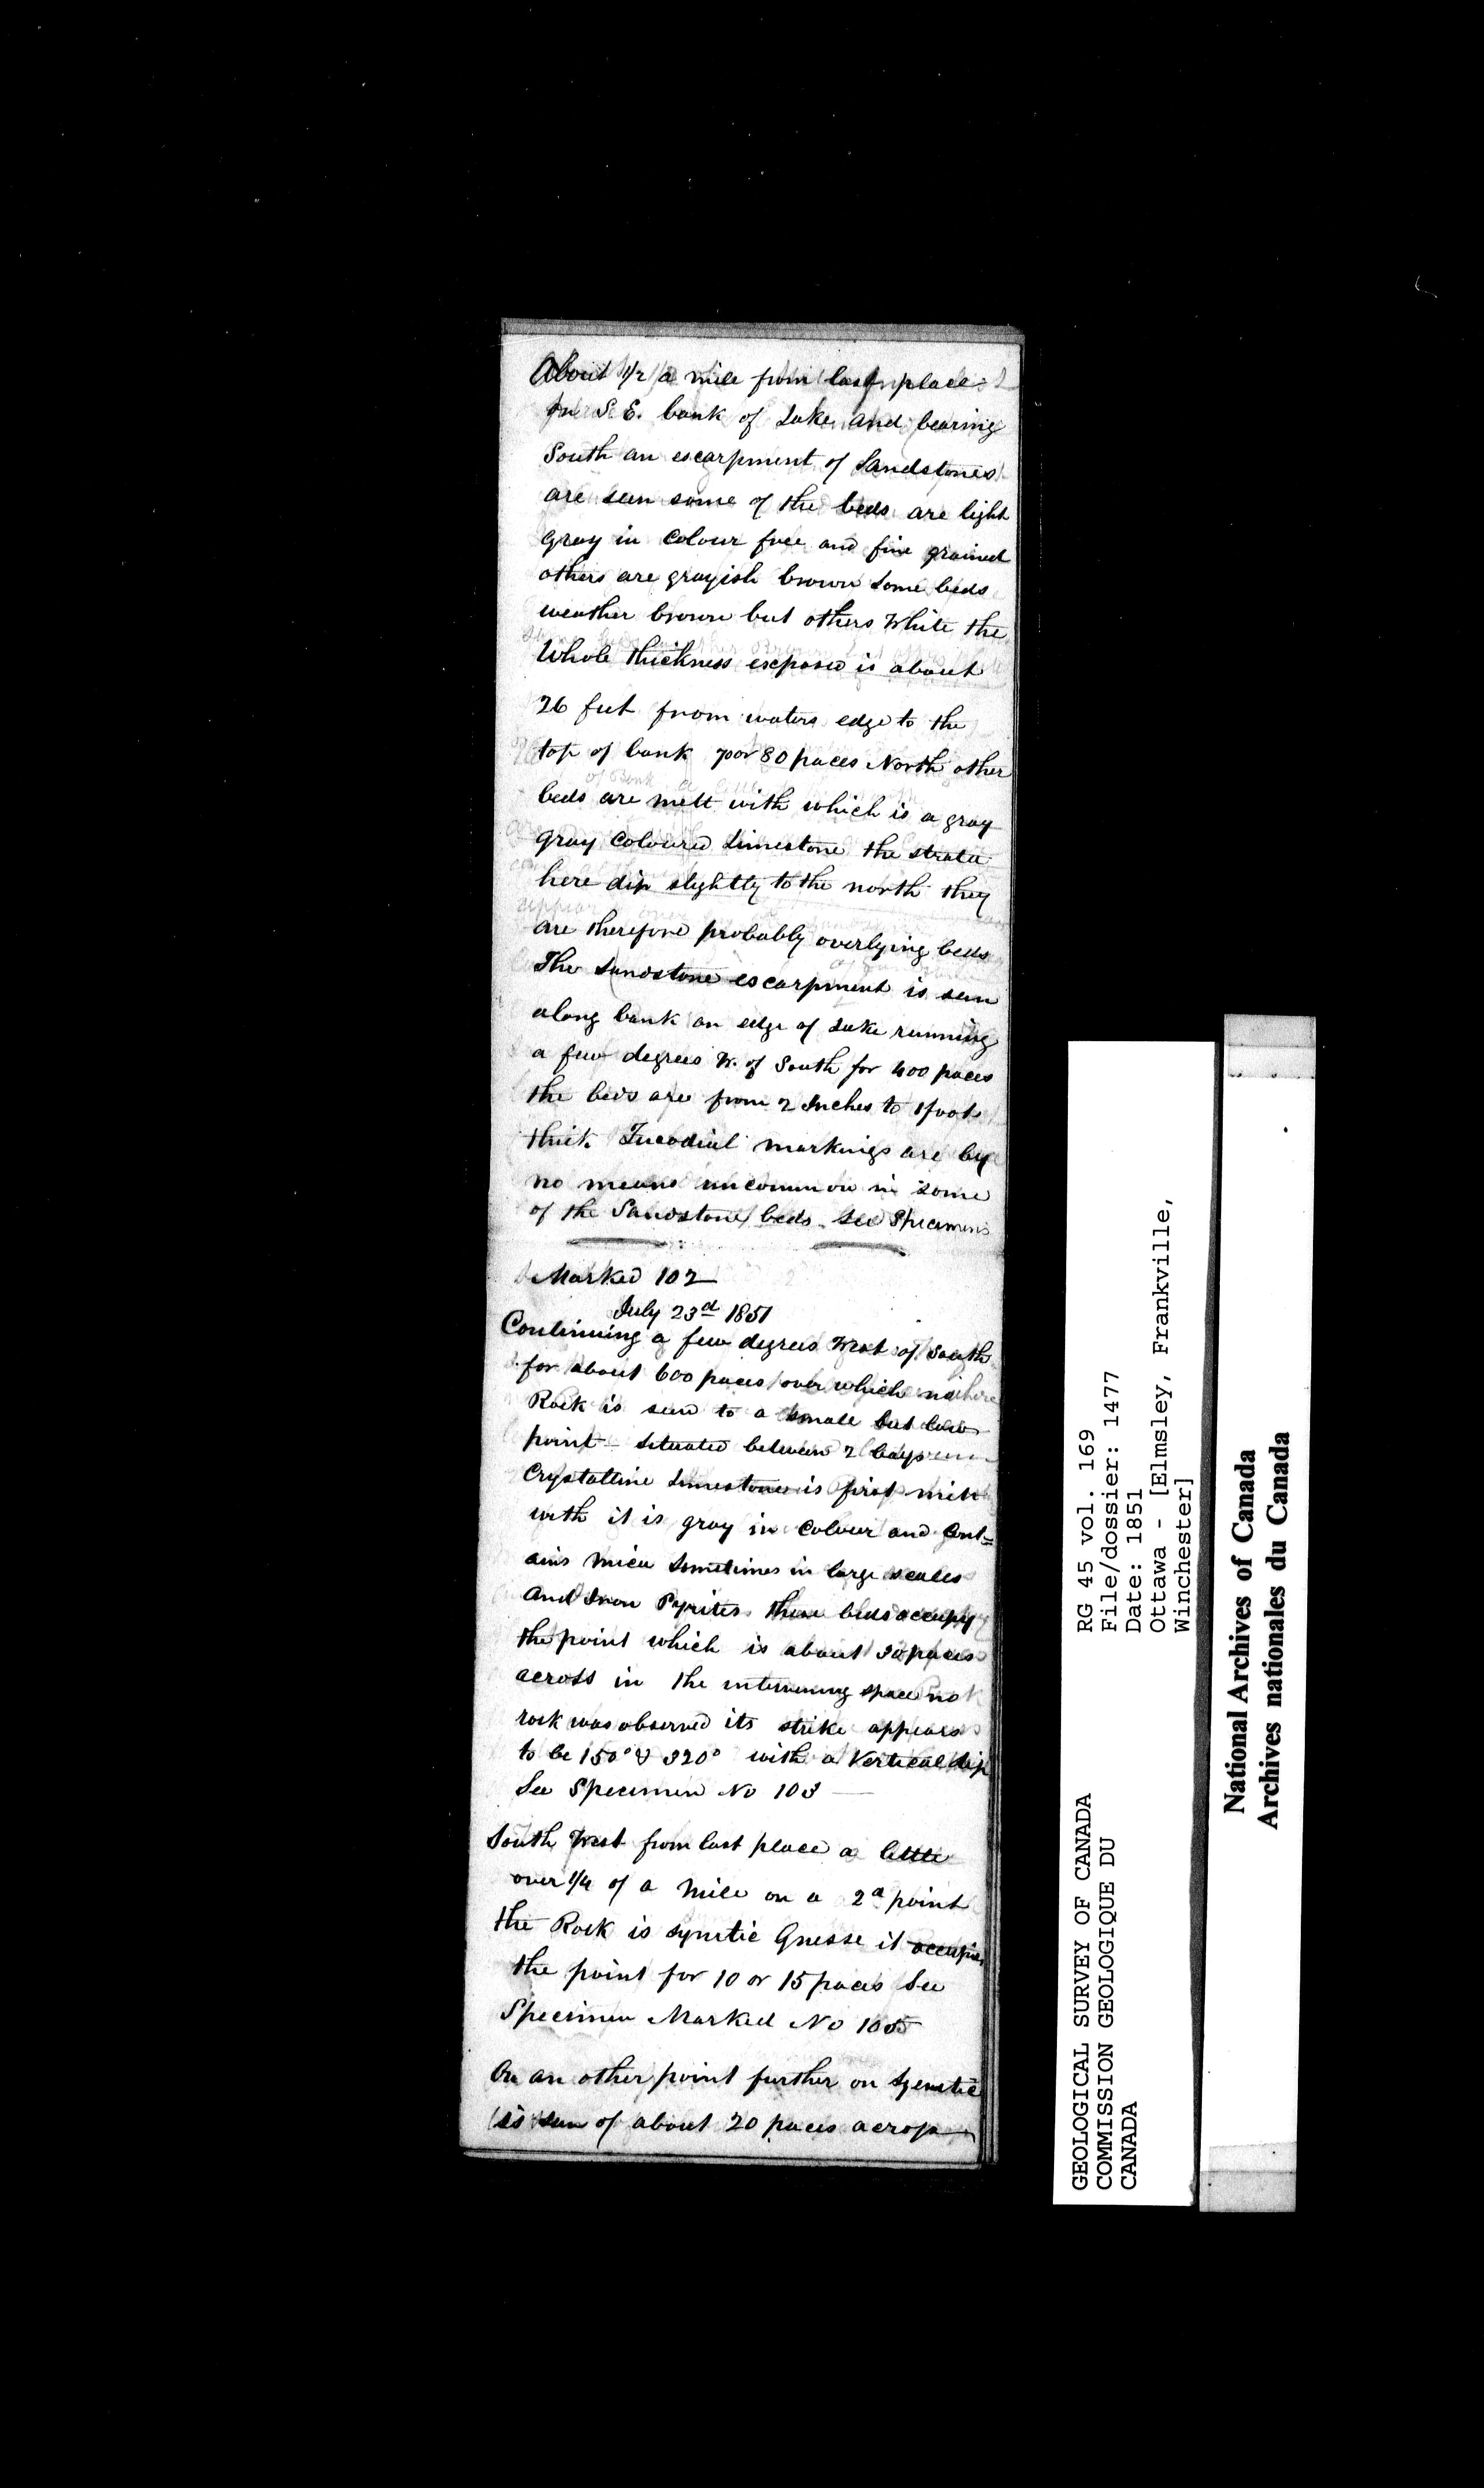 About 1/2 a mile from last place
on S. E. bank of Lake and bearing
South an escarpment of Sandstones
are seen some of the beds are light
gray in colour free and fine grained
others are grayish brown some beds
weather brown but others White the
Whole thickness exposed is about
26 feet from waters edge to the
top of bank 70 or 80 paces North other
beds are mett with which is a gray
gray coloured Limestone the strata
here dip slightly to the north they
are therefore probably overlying beds
The Sandstone escarpment is seen
along bank on edge of Lake running
a few degrees W. of South for 400 paces
the beds are from 2 Inches to 1 foot
thick Fucodial markings are by
no means uncommon in some
of the Sandstone beds see Specimens
Marked 102
July 23d 1851
Continuing a few degrees West of South
for about 600 paces over which no
Rock is seen to a small but low
point situated between 2 bays
Crystalline Limestone is first mett
with it is gray in colour and Cont=
ains Mica sometimes in large scales
And Iron Pyrites these beds occupy
the point which is about 30 paces
across in the intervening space no
rock was observed its strike appears
to be 150° & 320° with a Vertical dip
See Specimen No 103
South West from last place a little
over 1/4 of a Mile on a 2d point
the Rock is synetic Gnesse it occupies
the point for 10 or 15 paces See
Specimen Marked No 105
On an other point further on Syenetic
is seen of about 20 paces across
RG 45 vol. 169
File/dossier: 1477
Date: 1851
Ottawa - [Elmsley, Frankville,
Winchester]
GEOLOGICAL SURVEY OF CANADA
COMMISSION GEOLOGIQUE DU
CANADA
National Archives of Canada
Archives nationales du Canada